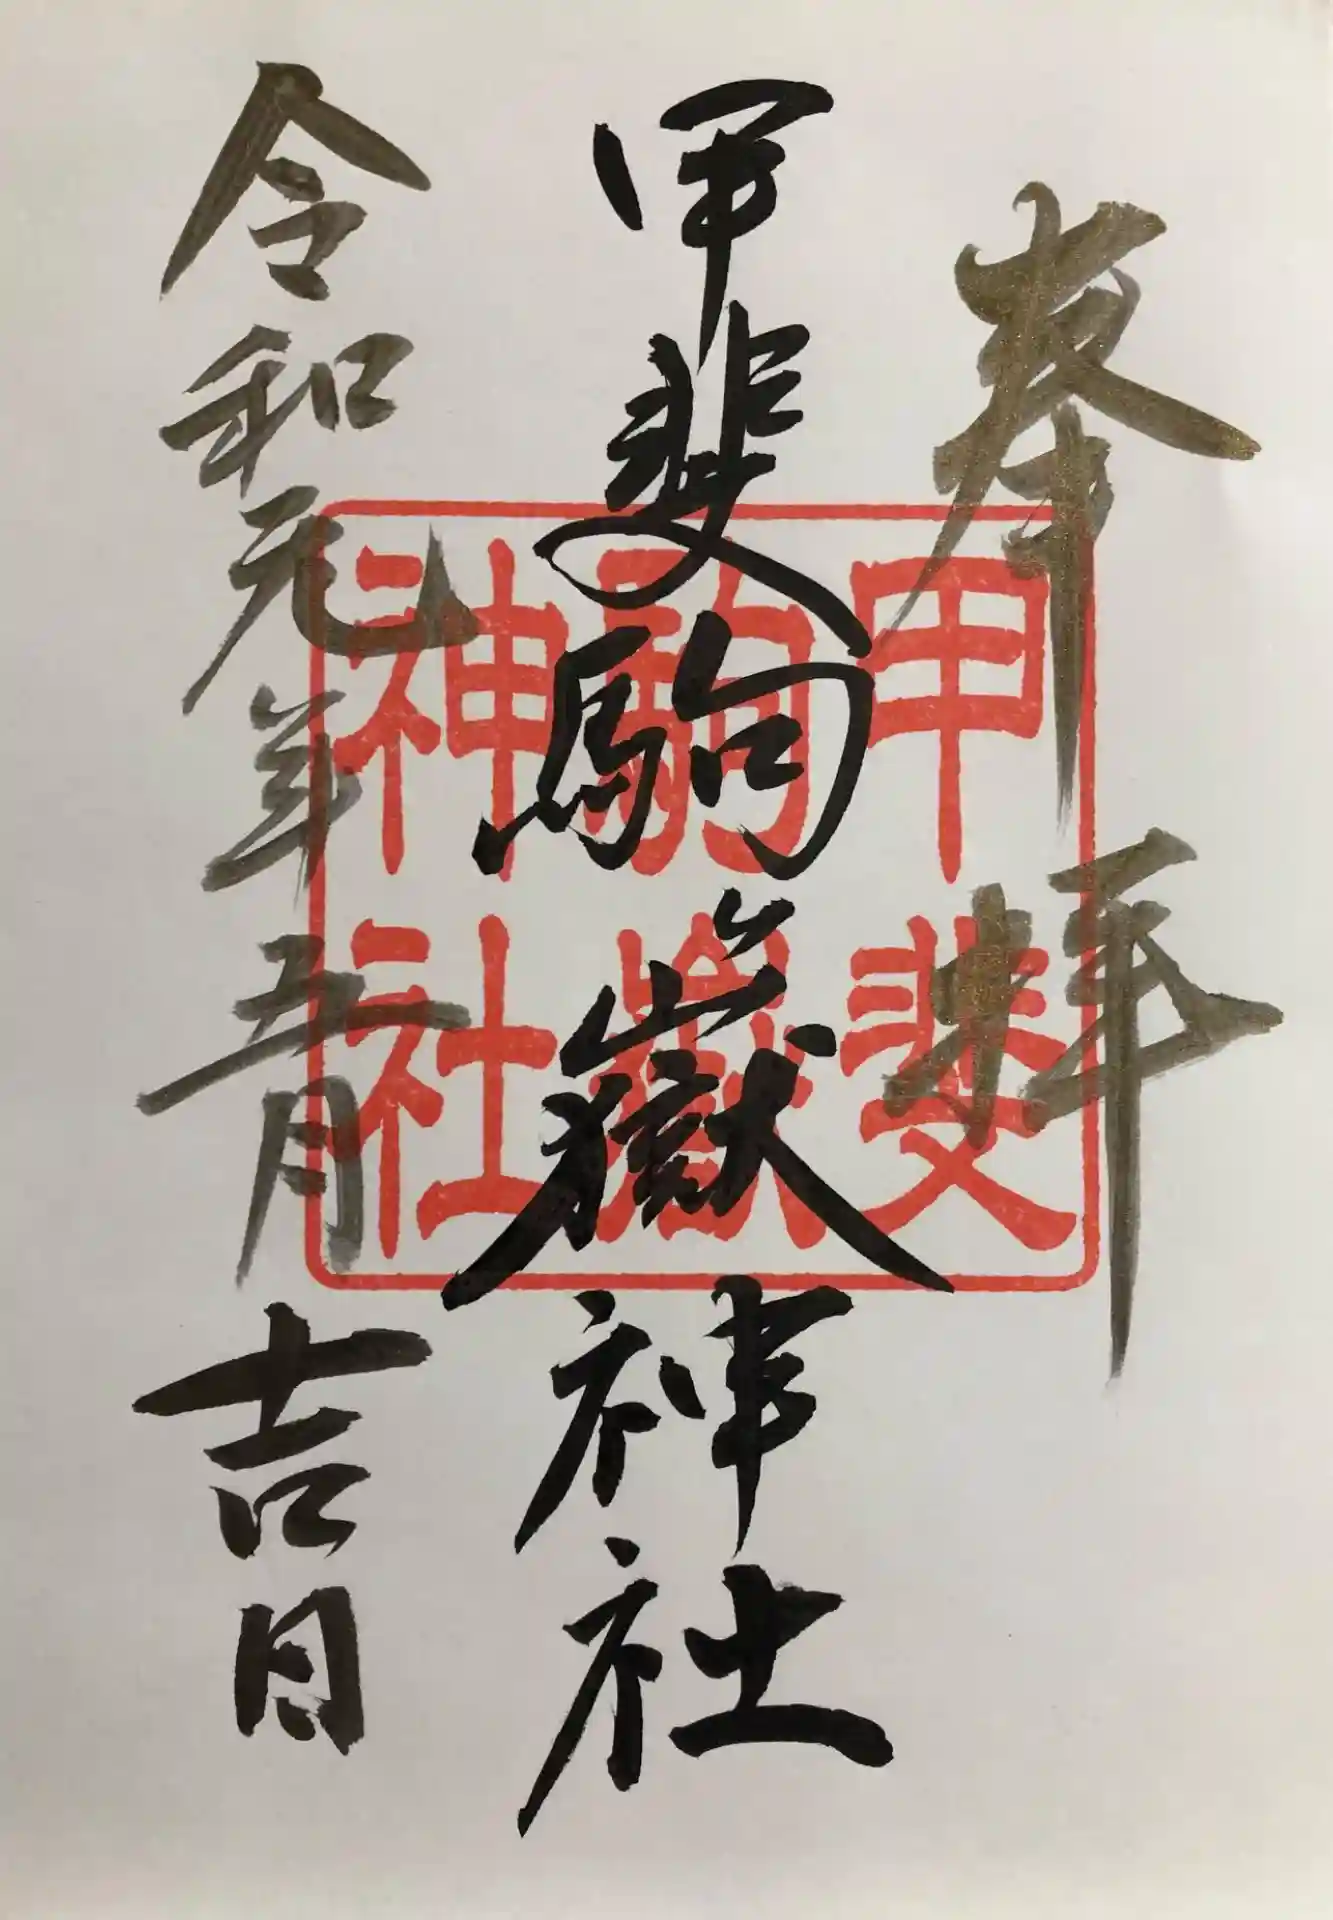 奉拝
甲斐駒嶽神社
甲斐
駒嶽
神社
令和元年五月吉日